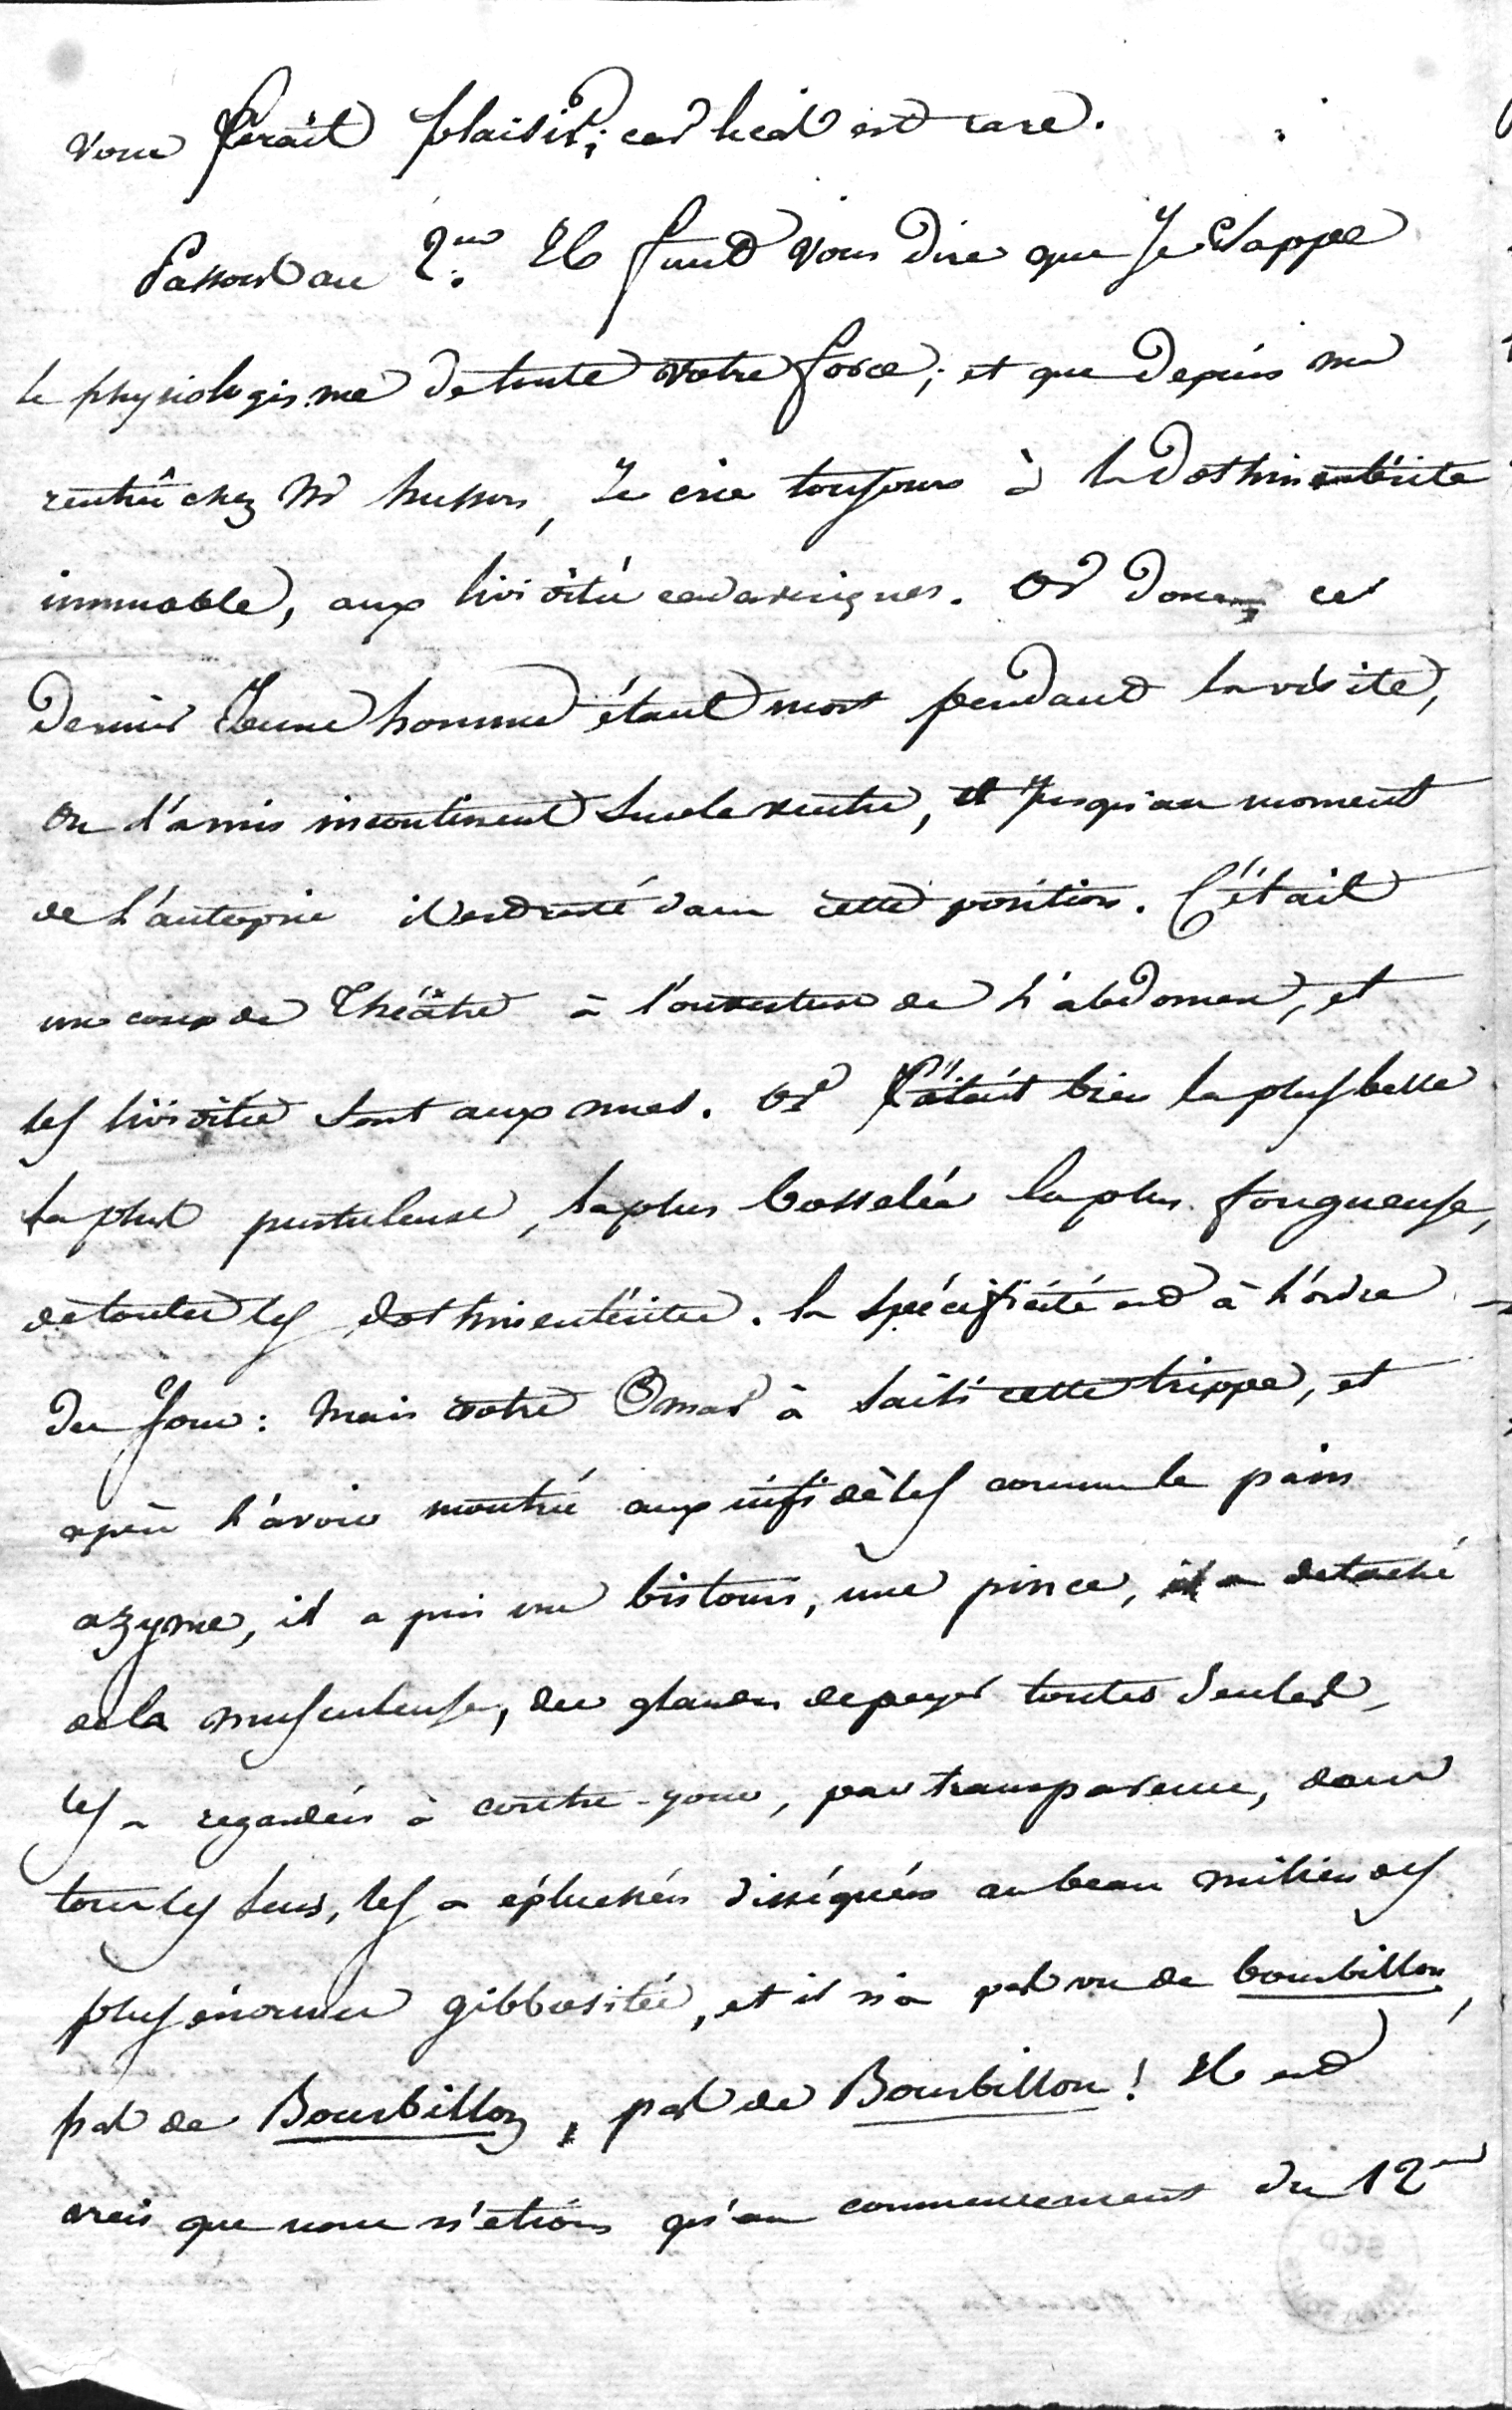 vous ferait plaisir; car le cas est rare.
Passons au 2me Il faut vous dire que Je sappe
le physiologisme de toute votre force; et que depuis ma
rentrée chez Mr husson, Je crie toujours à la dothinentérite
immuable, aux lividités cadavériques. Or donc ce
dernier Jeune homme étant mort pendant la visite,
on l'a mis incontinent sur le ventre, et Jusqu'au moment
de l'autopsie il est resté dans cette position. C'était
un coup de Théâtre à l'ouverture de l'abdomen, et
les lividités sont aux nues. Or C'était bien la plus belle
la plus pustuleuse, la plus bosselée la plus fongueuse,
de toutes les dothinentérites. la spécificité est à l'ordre
du Jour: Mais votre Omar à saisi cette trippe, et
après l'avoir montrée aux infidèles comme le pain
azyme, il a pris un bistouri, une pince, il a detaché
de la musculeuse, des glandes de peyer toutes seules,
les a regardées à contre-jour, par transparence, dans
tous les sens, les a épluchées disséquées au beau milieu des
plus énormes gibbosités, et il n'a pas vu de bourbillon,
pas de Bourbillon, pas de Bourbillon! Il est
vrai que nous n'étions qu'au commencement du 12me
SCD